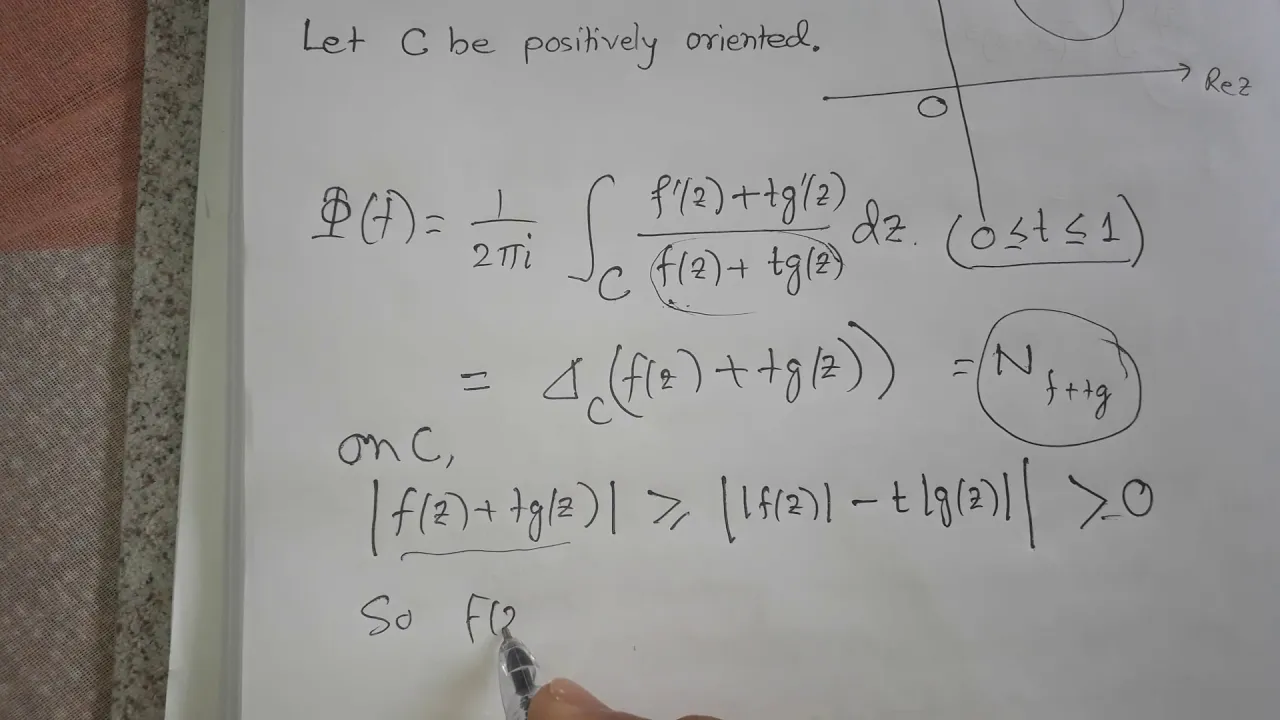 Let C be positively oriented.
Re z
O
Φ(t) = 1/2πi ∫_C f'(z)+tg'(z)/f(z)+tg(z) dz. (0 ≤ t ≤ 1)
= Δ_C(f(z)+tg(z)) = N_f+tg
on C,
|f(z)+tg(z)| ≥ ||f(z)| - t|g(z)|| ≥ 0
So f(z